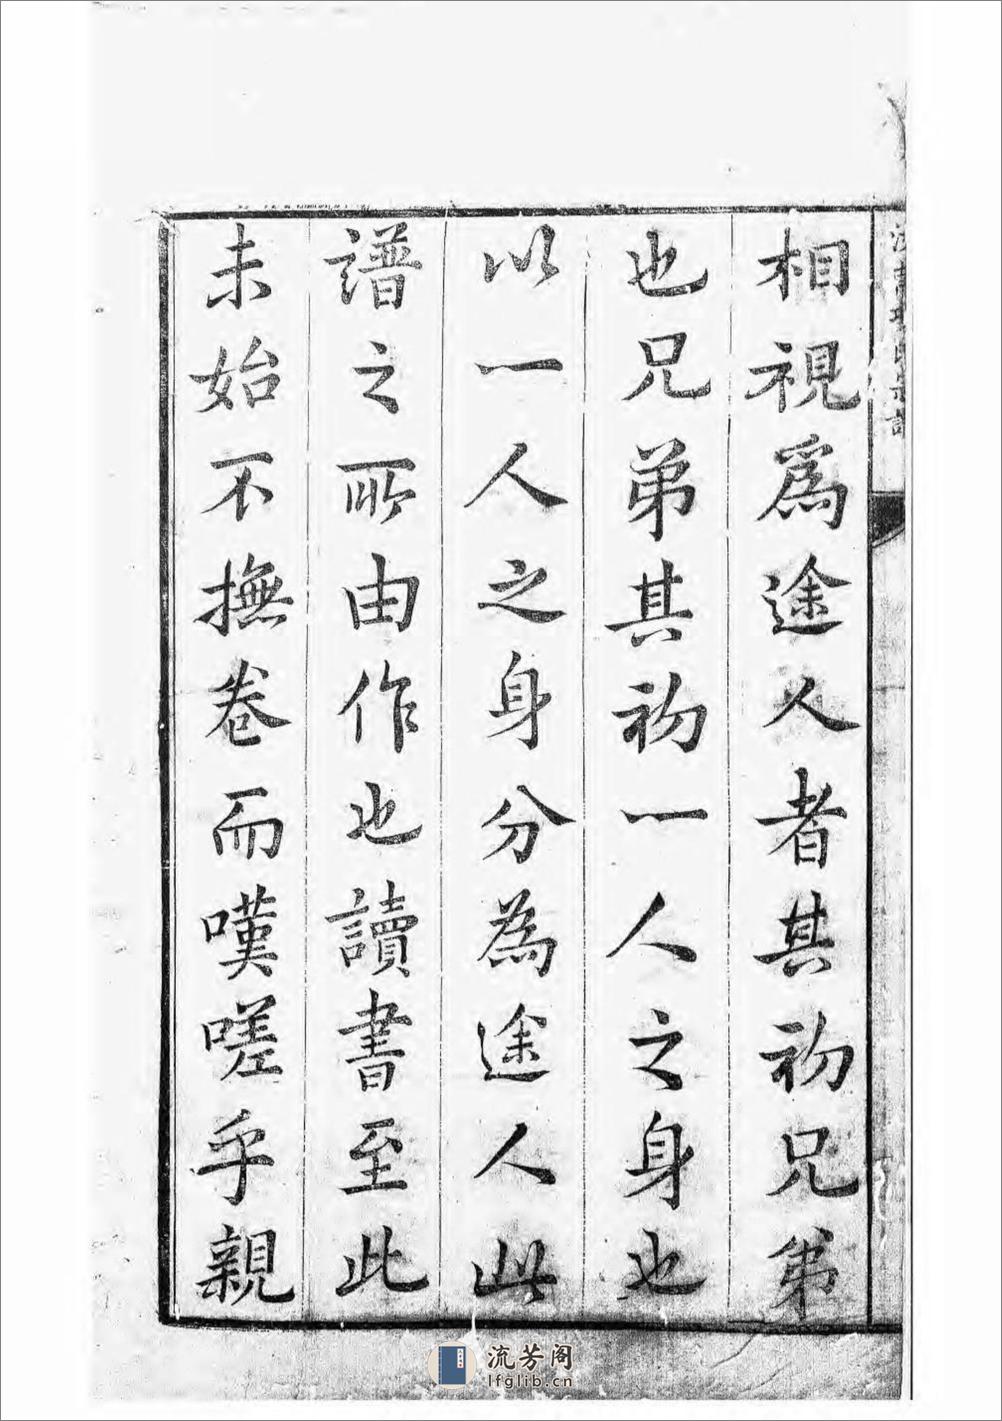 相視爲途人者其初兄弟
也兄弟其初一人之身也
以一人之身分為途人此
譜之所由作也讀書至此
未始不撫卷而嘆嗟乎親
流芳阁
lfglib.cn